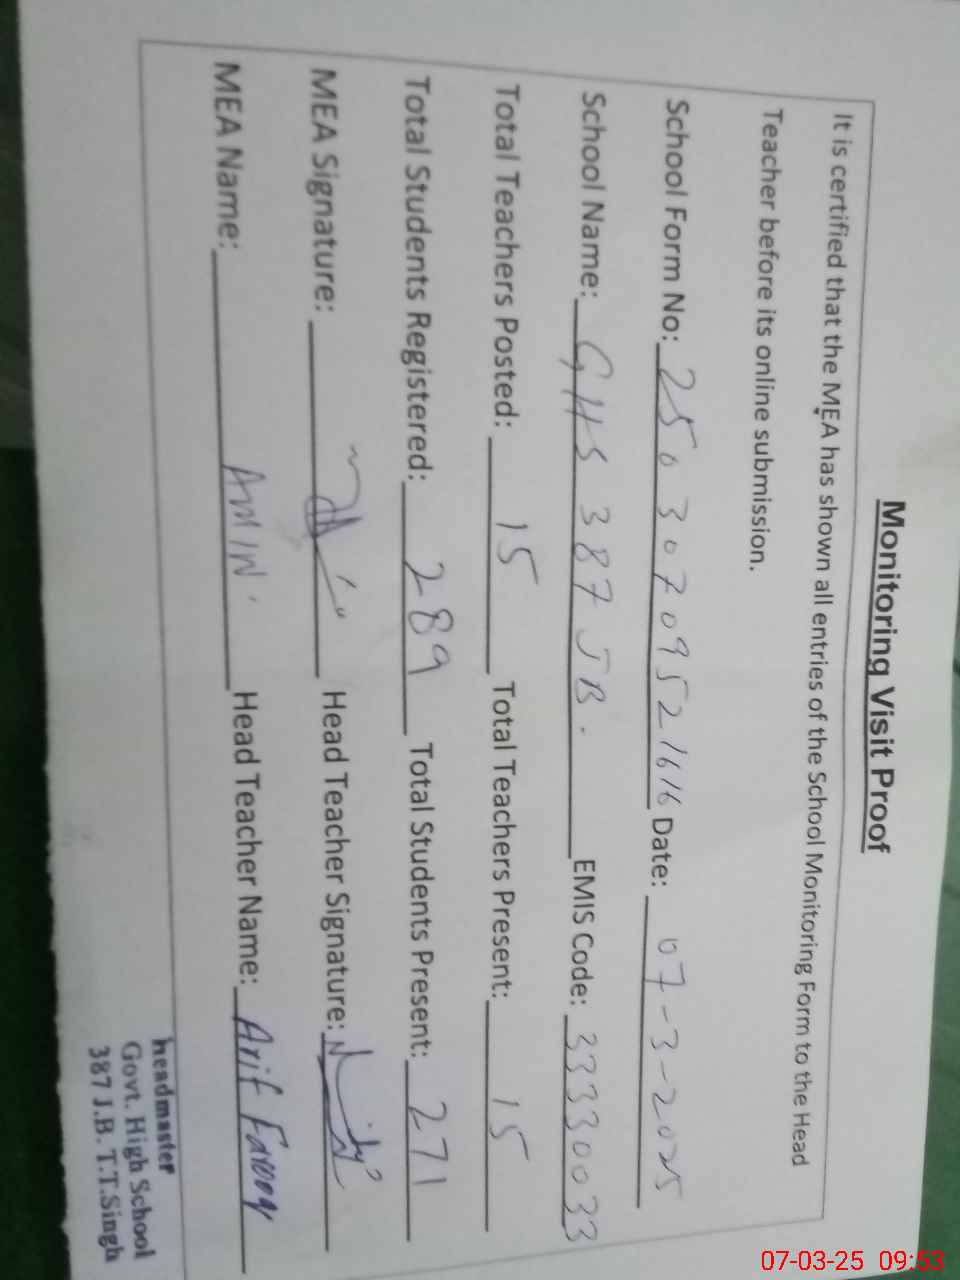 Monitoring Visit Proof
It is certified that the MEA has shown all entries of the School Monitoring Form to the Head
Teacher before its online submission.
School Form No: 25030709521616 Date: 07-3-2025
School Name: GHS 387 JB. EMIS Code: 33330033
Total Teachers Posted: 15 Total Teachers Present: 15
Total Students Registered: 289 Total Students Present: 271
MEA Signature: Head Teacher Signature:
MEA Name: AMIN Head Teacher Name: Arif Farooq
headmaster
Govt. High School
387 J.B. T.T.Singh
07-03-25 09:53